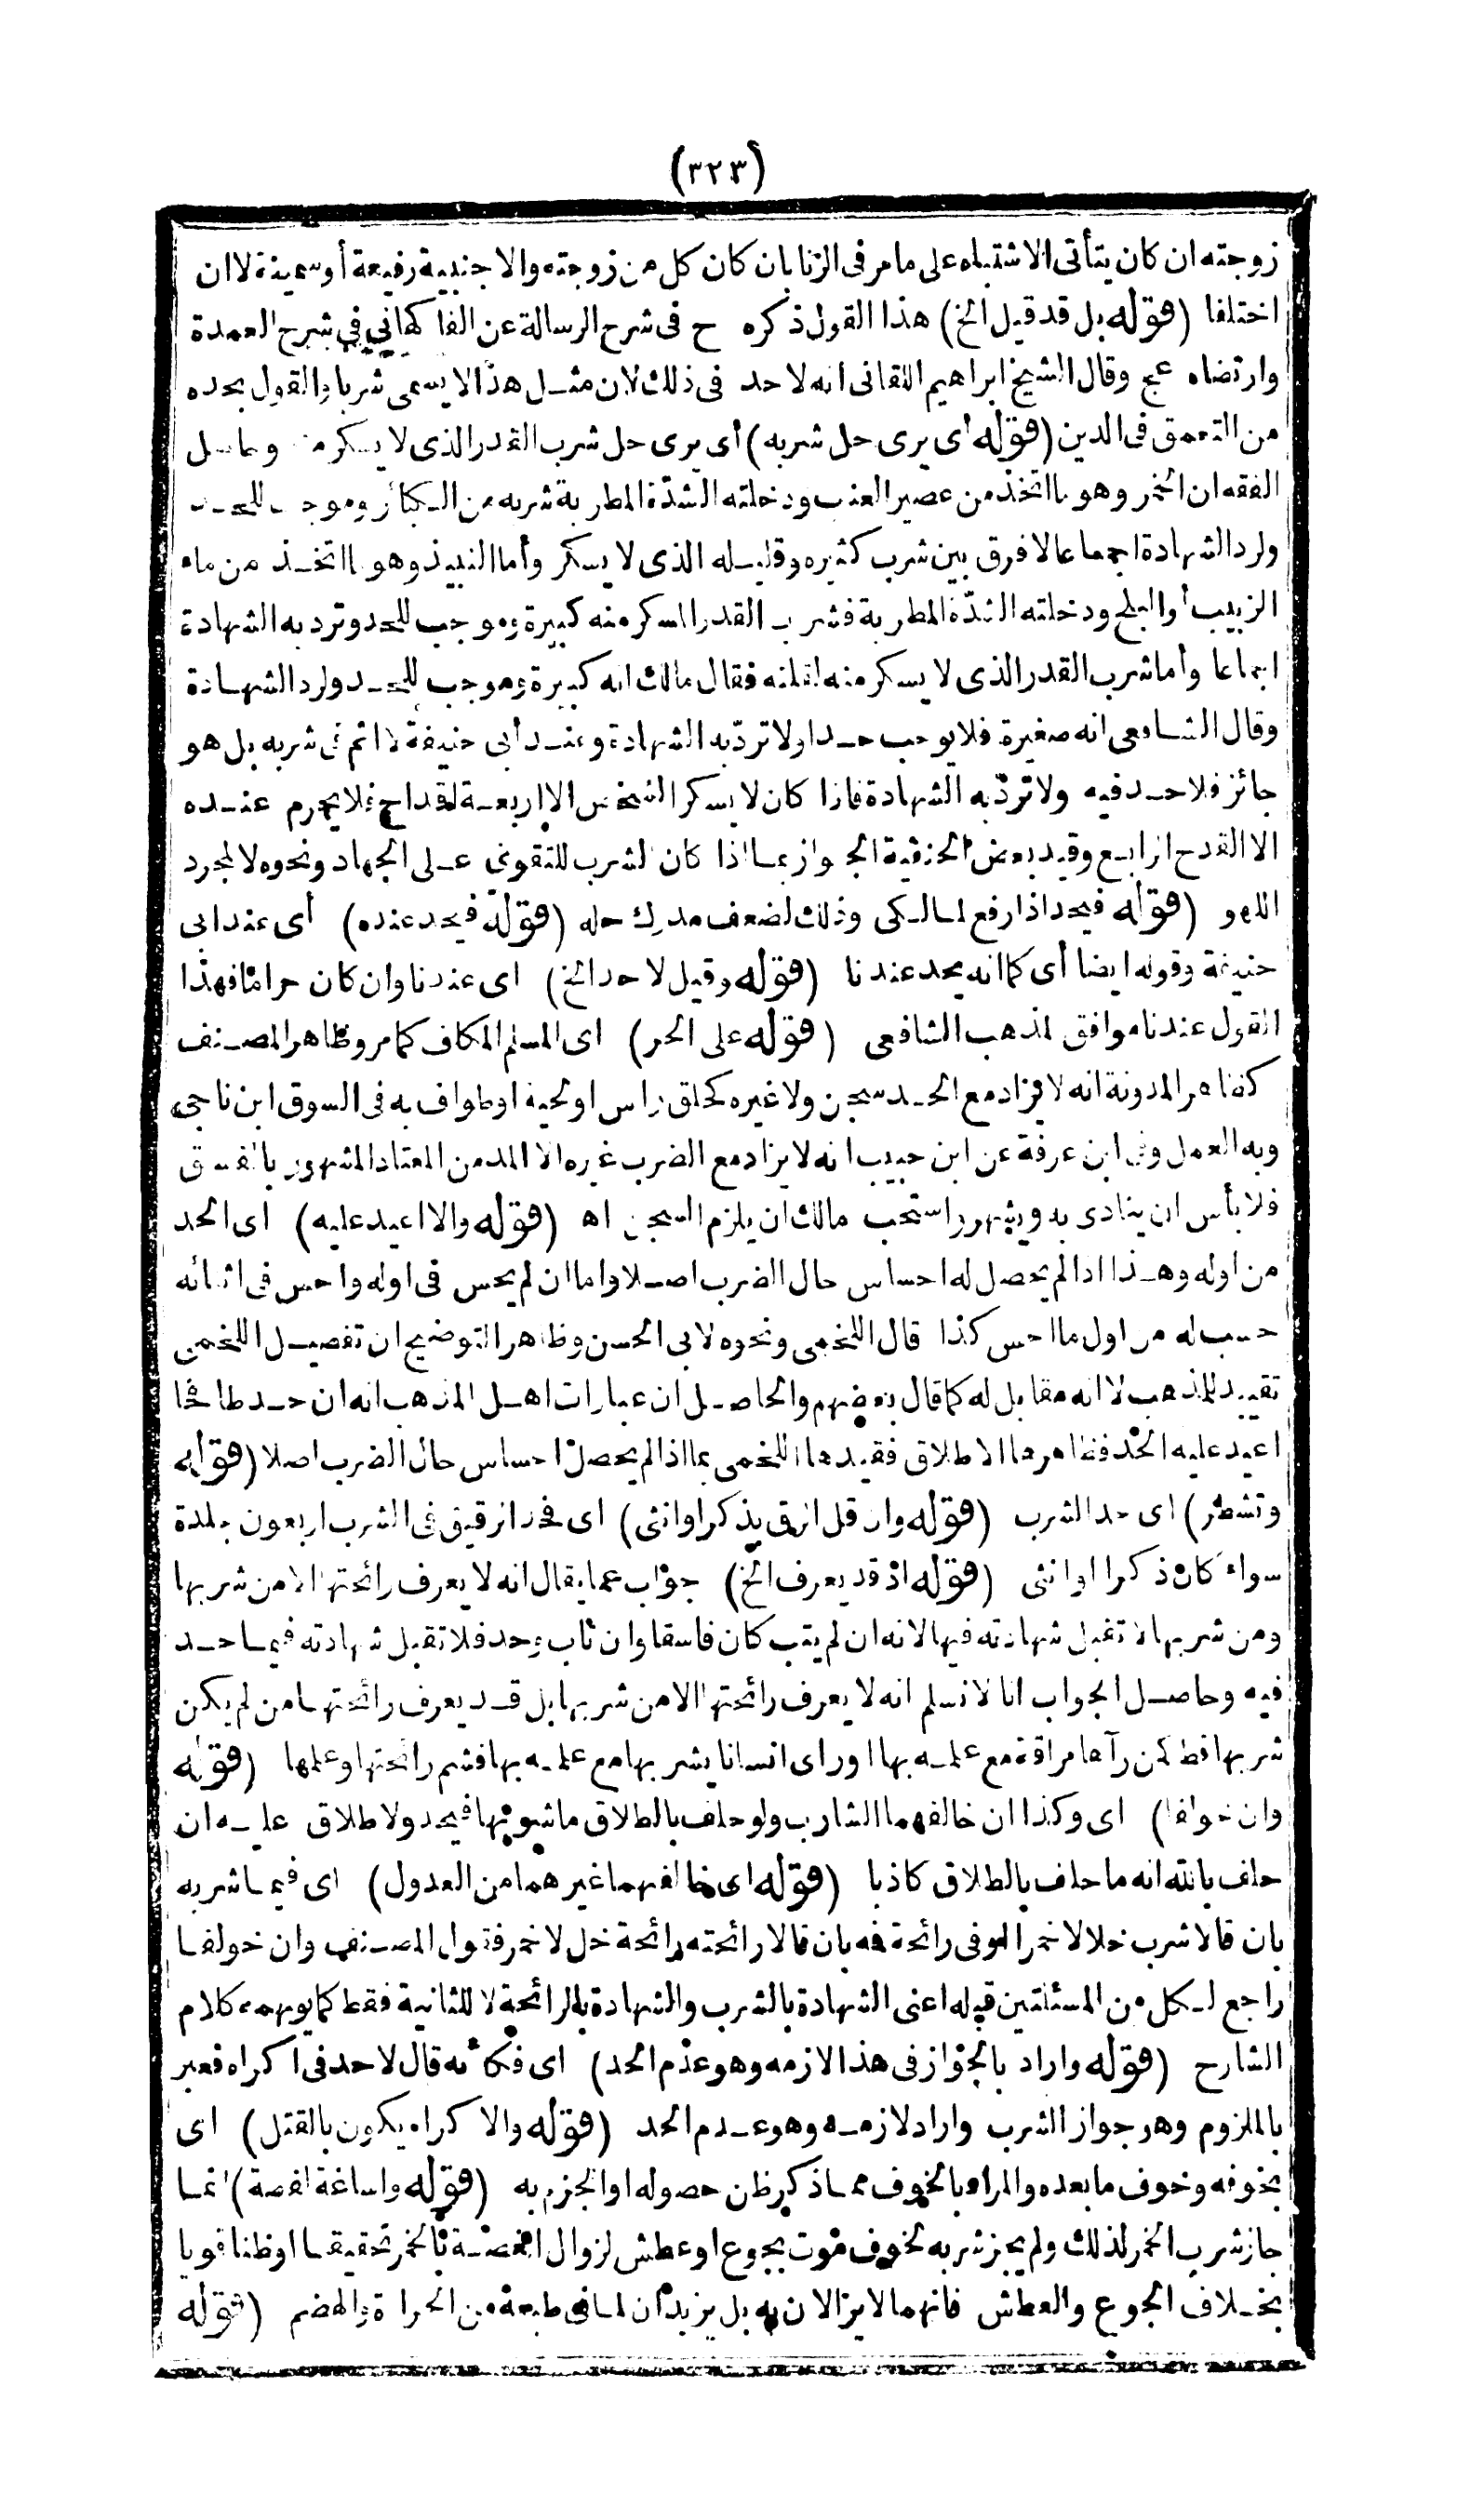 (٣٢٣)
زوجته ان كان يتأتى الاشتباه على مامر فى الزنا بان كان كل من زوجته والاجنبية رفيعة أو سمينة لا ان
اختلفا (قوله بل قد قيل الخ) هذا القول ذكره ح فى شرح الرسالة عن الفاكهانى فى شرح العمدة
وارتضاه عج وقال الشيخ ابراهيم اللقانى انه لا حد فى ذلك لان مثل هذا لا يسمى شربا والقول بحده
من التعمق فى الدين (قوله أى يرى حل شربه) أى يرى حل شرب القدر الذى لا يسكر منه وحاصل
الفقه ان الخمر وهو ما اتخذ من عصير العنب ودخلته الشدّة المطربة شربه من الكبائر وموجب للحد
ولرد الشهادة اجماعا لا فرق بين شرب كثيره وقليله الذى لا يسكر وأما النبيذ وهو ما اتخذ من ماء
الزبيب أو البلح ودخلته الشدّة المطربة فشرب القدر المسكر منه كبيرة وموجب للحد وترد به الشهادة
اجماعا وأما شرب القدر الذى لا يسكر منه لقلته فقال مالك انه كبيرة وموجب للحد ولرد الشهادة
وقال الشافعى انه صغيرة فلا يوجب حدا ولا تردّ به الشهادة وعند أبى حنيفة لا اثم فى شربه بل هو
جائز فلا حد فيه ولا تردّ به الشهادة فاذا كان لا يسكر الشخص الا اربعة اقداح فلا يحرم عنده
الا القدح الرابع وقيد بعض الحنفية الجواز بما اذا كان الشرب للتقوى على الجهاد ونحوه لا لمجرد
اللهو (قوله فيحد اذا رفع لمالكى وذلك لضعف مدرك حله (قوله فيحد عنده) أى عند ابى
حنيفة وقوله ايضا أى كما انه يحد عندنا (قوله وقيل لا حد الخ) اى عندنا وان كان حراما فهذا
القول عندنا موافق لمذهب الشافعى (قوله على الحر) اى المسلم المكلف كما مر وظاهر المصنف
كظاهر المدونة انه لا يزاد مع الحد سجن ولا غيره كحلق راس او لحية او طواف به فى السوق ابن ناجى
وبه العمل وفى ابن عرفة عن ابن حبيب انه لا يزاد مع الضرب غيره الا المدمن المعتاد المشهور بالفسق
فلا بأس ان ينادى به ويشهر واستحب مالك ان يلزم السجن اه (قوله والا اعيد عليه) اى الحد
من اوله وهذا اذا لم يحصل له احساس حال الضرب اصلا واما ان لم يحس فى اوله واحس فى اثنائه
حسب له من اول ما احس كذا قال اللخمى ونحوه لابى الحسن وظاهر التوضيح ان تفصيل اللخمى
تقييد للمذهب لا انه مقابل له كما قال بعضهم والحاصل ان عبارات اهل المذهب انه ان حد طافحا
اعيد عليه الحد فظاهرها الاطلاق فقيدها اللخمى بما اذا لم يحصل احساس حال الضرب اصلا (قوله
وتشطر) اى حد الشرب (قوله وان قل الرق بذكر او انثى) اى فحد الرقيق فى الشرب اربعون جلدة
سواء كان ذكرا او انثى (قوله اذ قد يعرف الخ) جواب عما يقال انه لا يعرف رائحتها الا من شربها
ومن شربها لا تقبل شهادته فيها لانه ان لم يتب كان فاسقا وان تاب وحد فلا تقبل شهادته فيما حد
فيه وحاصل الجواب انا لا نسلم انه لا يعرف رائحتها الا من شربها بل قد يعرف رائحتها من لم يكن
شربها قط كمن رآها مراقة مع علمه بها او راى انسانا يشربها مع علمه بها فشم رائحتها وعلمها (قوله
وان خولفا) اى وكذا ان خالفهما الشارب ولو حلف بالطلاق ما شربها فيحد ولا طلاق عليه ان
حلف بالله انه ما حلف بالطلاق كاذبا (قوله اى خالفهما غيرهما من العدول) اى فيما شربه
بان قالا شرب خلا لا خمرا او فى رائحة فمه بان قالا رائحته رائحة خل لا خمر فقول المصنف وان خولفا
راجع لكل من المسئلتين قبله اعنى الشهادة بالشرب والشهادة بالرائحة لا للثانية فقط كما يوهمه كلام
الشارح (قوله واراد بالجواز فى هذا لازمه وهو عدم الحد) اى فكأنه قال لا حد فى اكراه فعبر
بالملزوم وهو جواز الشرب واراد لازمه وهو عدم الحد (قوله والاكراه يكون بالقتل) اى
بخوفه وخوف ما بعده والمراد بالخوف مما ذكر ظن حصوله او الجزم به (قوله واساغة لغصة) انما
جاز شرب الخمر لذلك ولم يجز شربه لخوف موت بجوع او عطش لزوال الغصة بالخمر تحقيقا او ظنا قويا
بخلاف الجوع والعطش فانهما لا يزالان به بل يزيدان لما فى طبعه من الحرارة والهضم (قوله